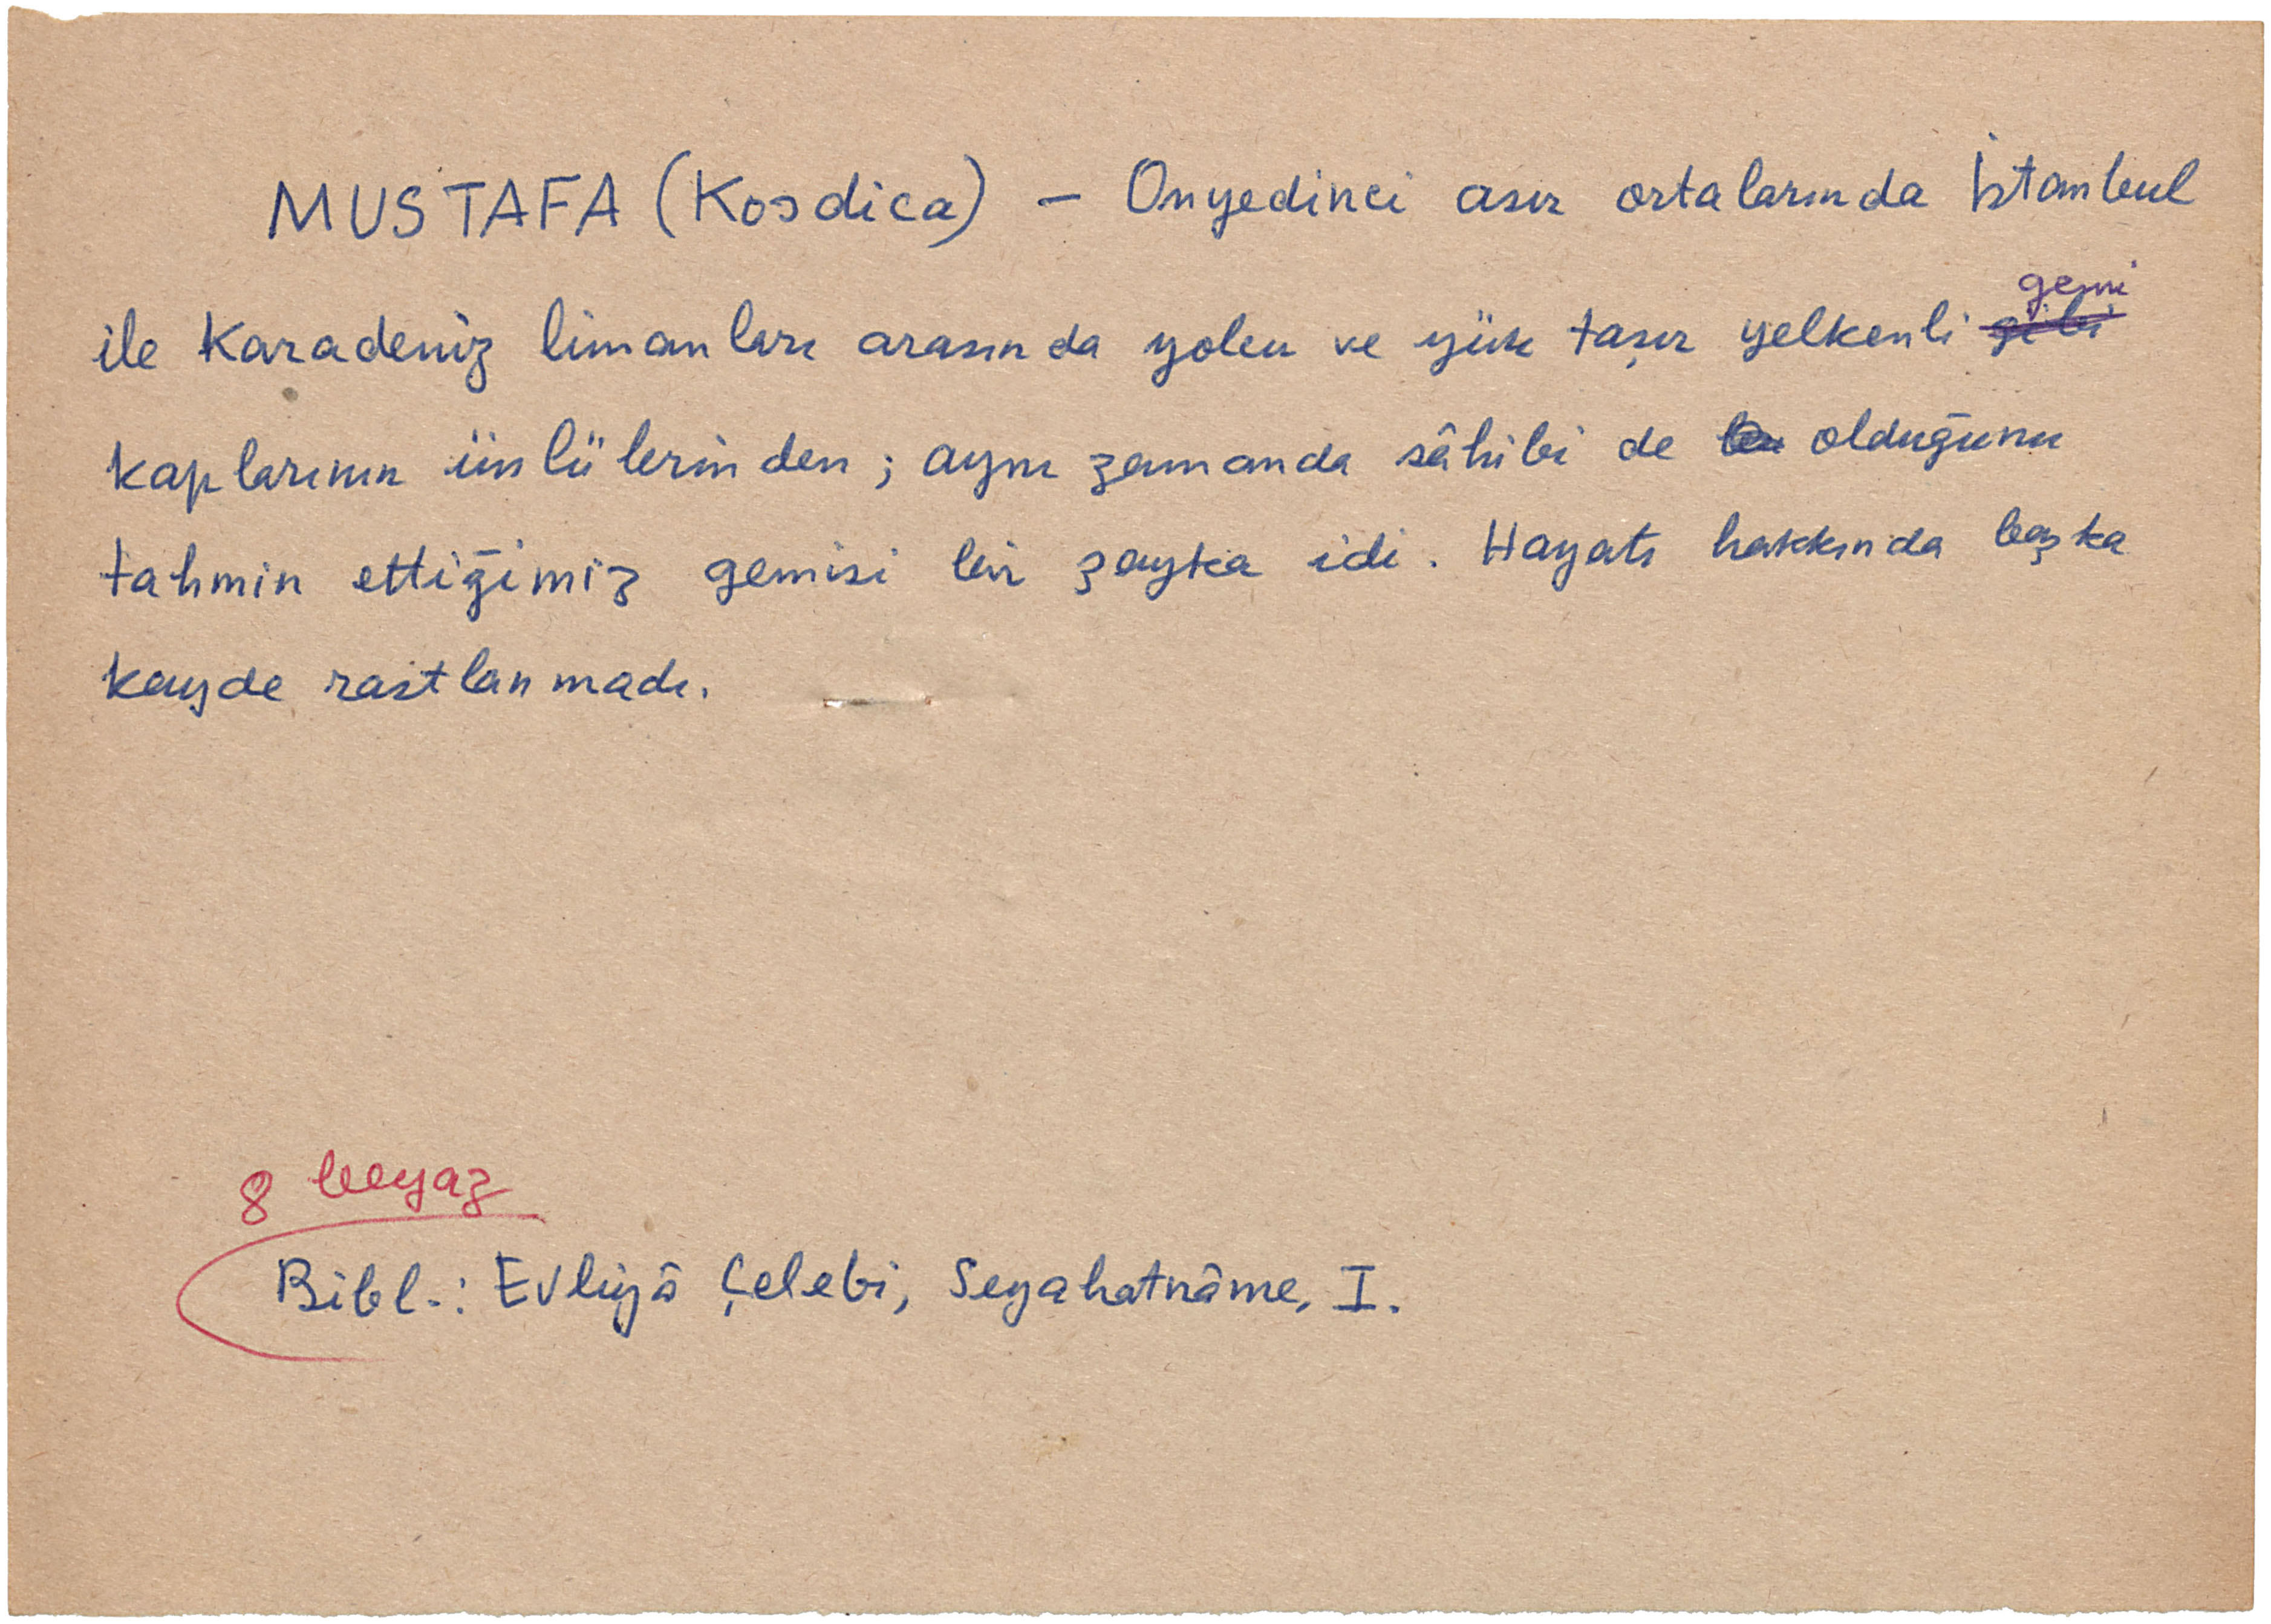 MUSTAFA (Kosdica) – Onyedinci asır ortalarında İstanbul
gemi
ile Karadeniz limanları arasında yolcu ve yük taşır yelkenli gibi
kaplarının ünlülerinden; aynı zamanda sâhibi de olduğunu
tahmin ettiğimiz gemisi bir şayka idi. Hayatı hakkında başka
kayde rastlanmadı.
8 beyaz
Bibl.: Evliyâ Çelebi, Seyahatnâme, I.